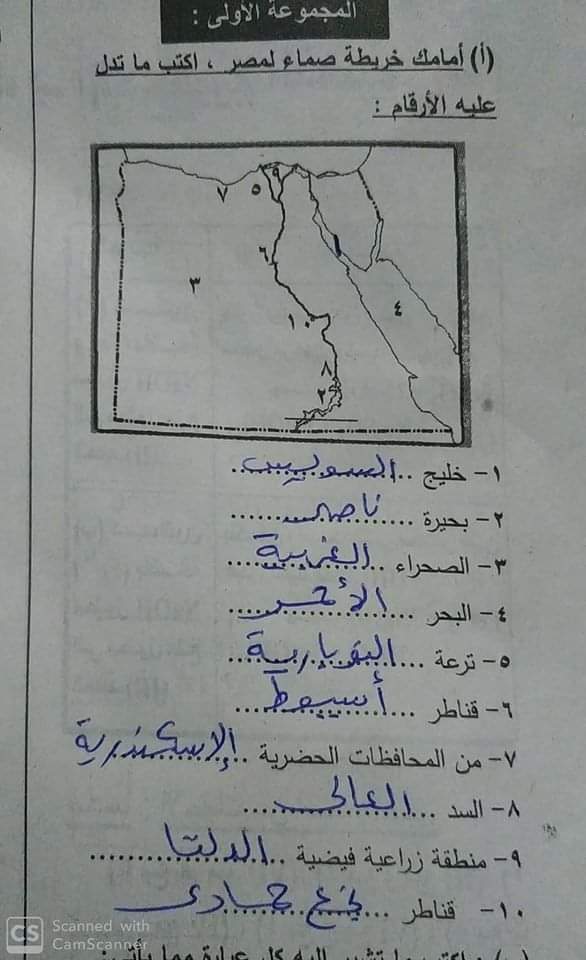 المجموعة الأولى :
(أ) أمامك خريطة صماء لمصر ، اكتب ما تدل
عليه الأرقام :
٩
٥
٧
١
٦
٣
٤
١٠
٨
٢
١- خليج السويس
٢- بحيرة ناصر
٣- الصحراء الغربية
٤- البحر الأحمر
٥- ترعة النوبارية
٦- قناطر أسيوط
٧- من المحافظات الحضرية الإسكندرية
٨- السد العالى
٩- منطقة زراعية فيضية الدلتا
١٠- قناطر نجع حمادى
CS Scanned with
CamScanner